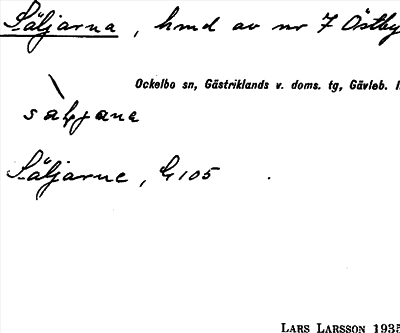 Säljarna, hmd av nr 7 Östby
Ockelbo sn, Gästriklands v. doms. tg, Gävleb. l
Säljarne, G 105
LARS LARSSON 1935